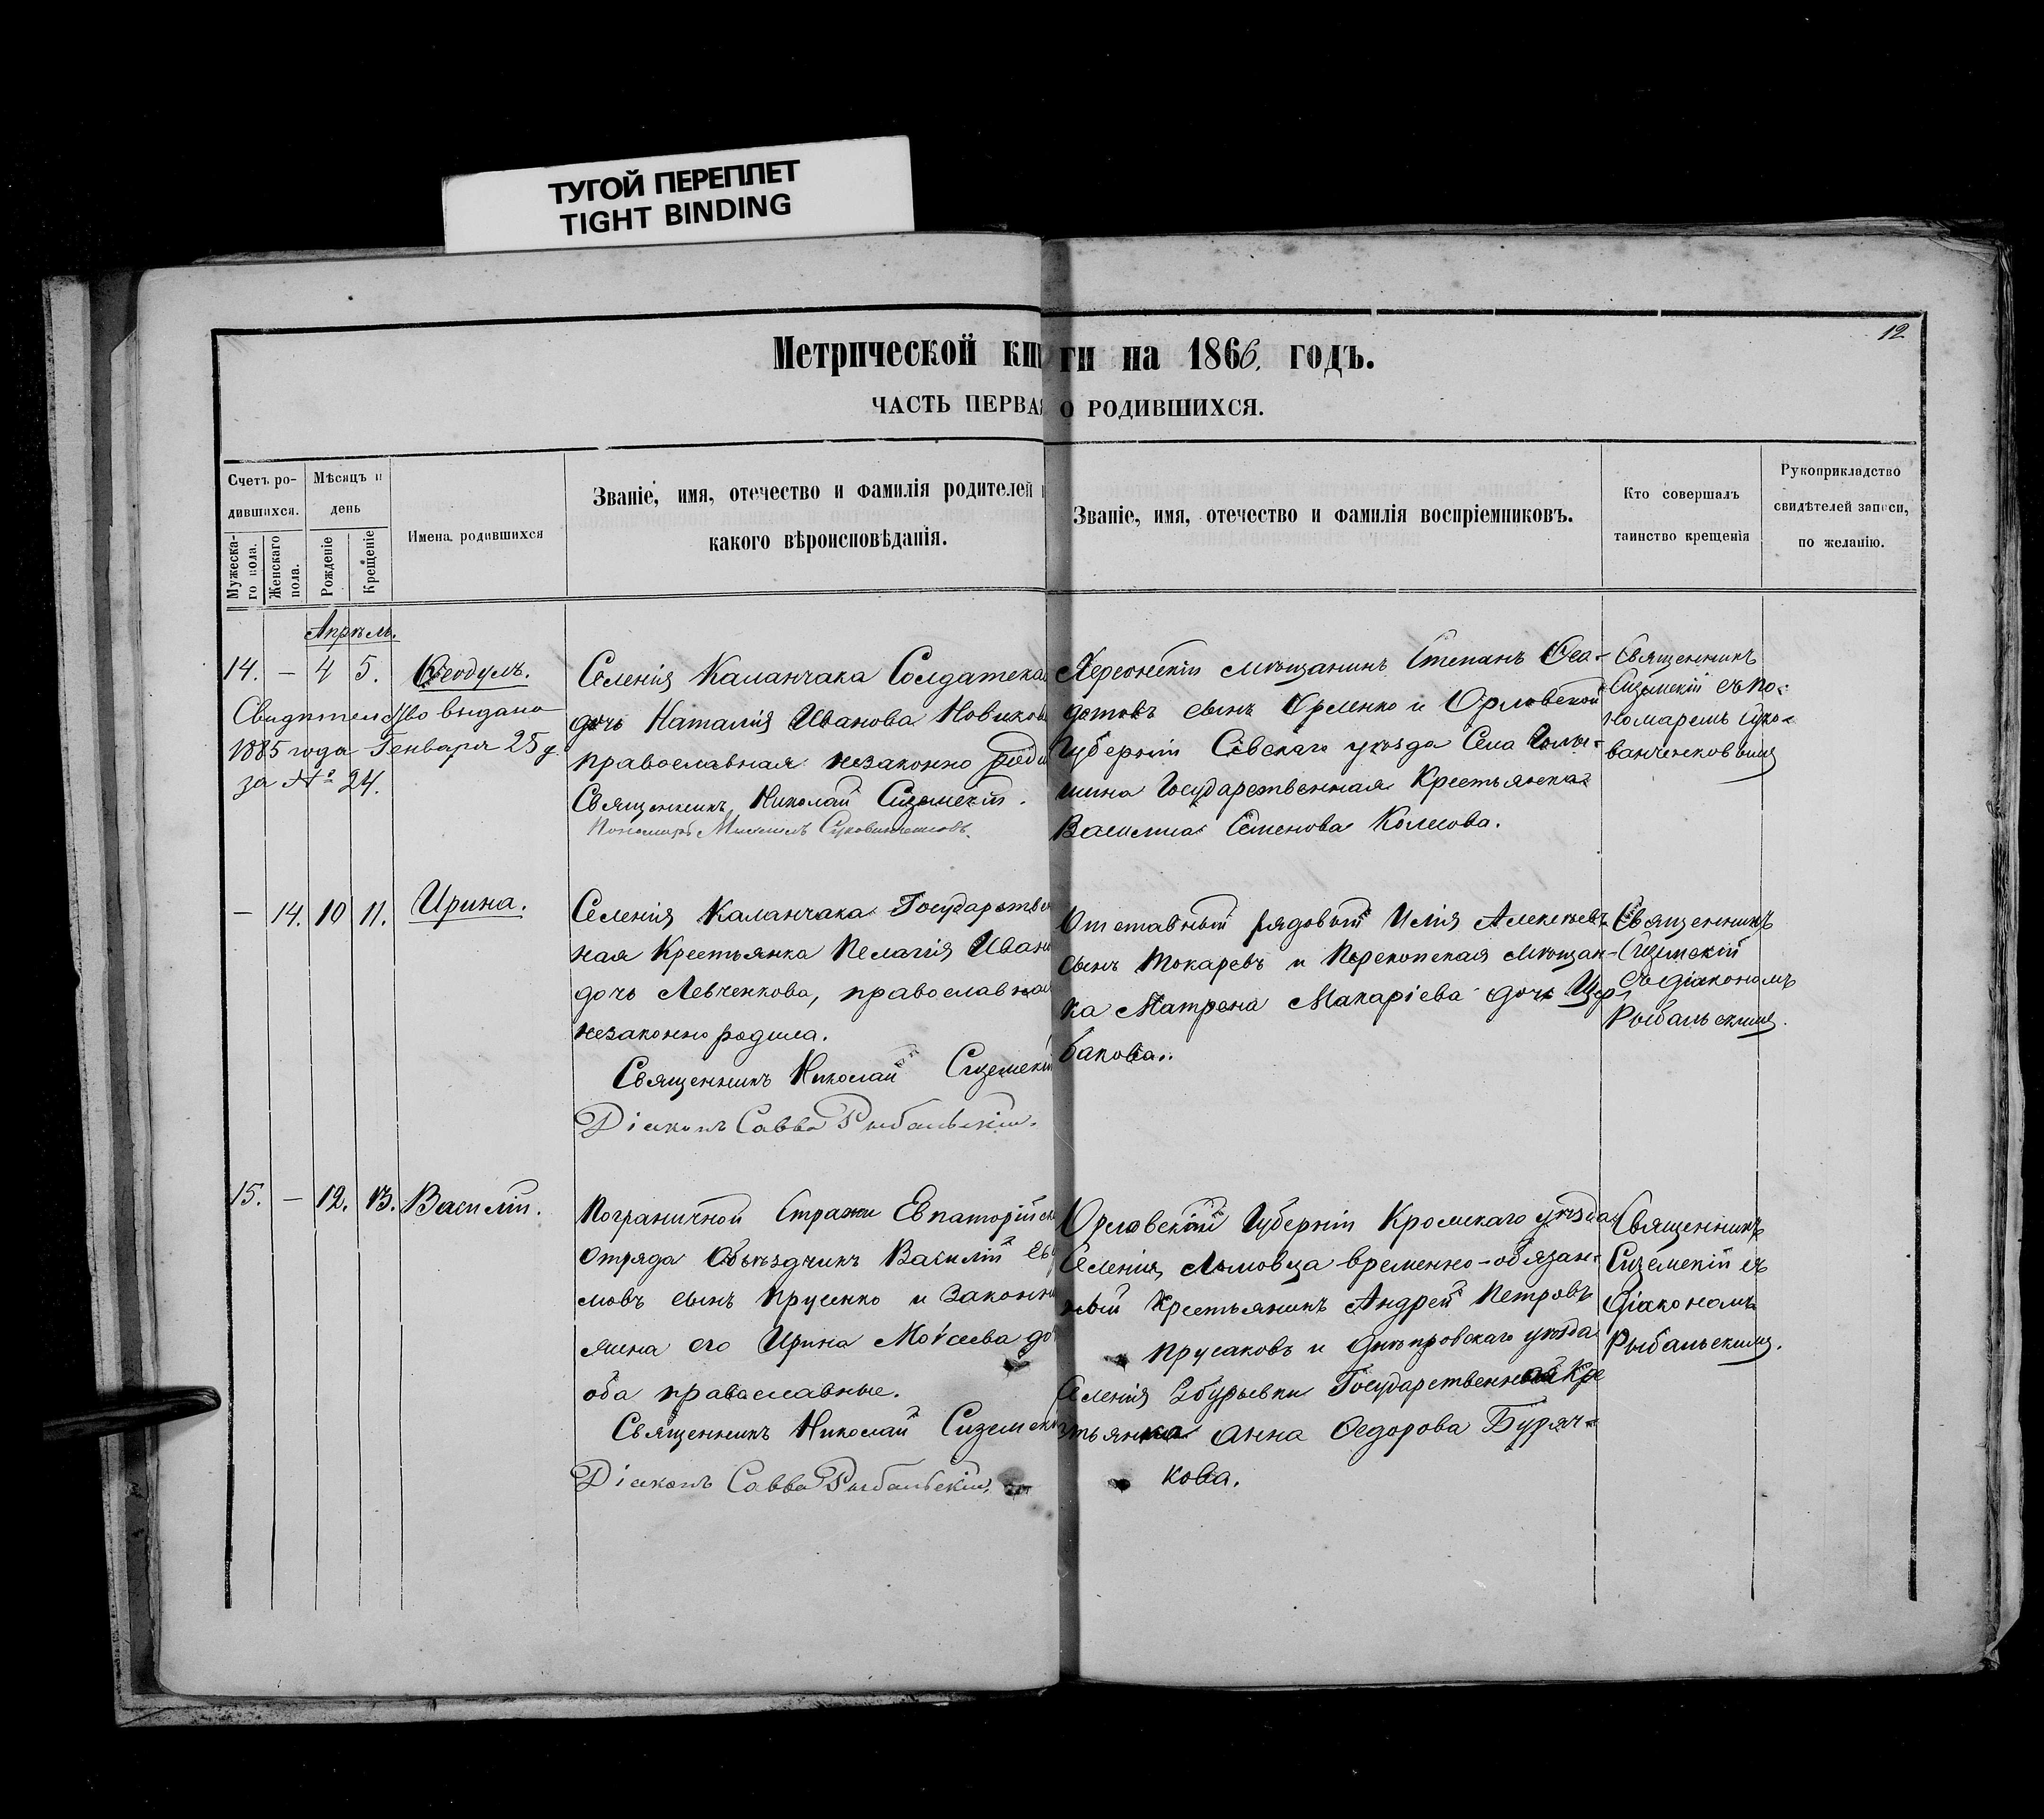 ТУГОЙ ПЕРЕПЛЕТ
TIGHT BINDING
12
Метрической кни ги на 1866. годъ.
ЧАСТЬ ПЕРВАЯ О РОДИВШИХСЯ.
Счетъ ро-
дившихся.
Мужеска-
го пола.
Женскаго
пола.
Мѣсяцъ и
день
Рожденіе
Крещеніе
Имена родившихся
Званіе, имя, отечество и фамилія родителей и
какого вѣроисповѣданія.
Званіе, имя, отечество и фамилія воспріемниковъ.
Кто совершалъ
таинство крещенія
Рукоприкладство
свидѣтелей записи,
по желанію.
Апрѣль.
14. — 4 5. Ѳеодулъ.
Свидѣтельство выдано
1885 года Генваря 25 д.
за № 24.
Селенія Каланчака Солдатска
дочь Наталія Иванова Новиков
православная незаконно роди
Священникъ Николай Сиземскій.
Пономарь Михаилъ Сукованченковъ.
Херсонскій мѣщанинъ Степанъ Ѳео-
дотовъ сынъ Яременко и Орловской
Губерніи Сѣвскаго уѣзда Села
шина Государственная Крестьянка
Василиса Семенова Колесова.
Священникъ
Сиземскій съ по-
номаремъ Суко-
ванченковымъ
— 14. 10 11. Ирина.
Селенія Каланчака Государствен
ная Крестьянка Пелагія Иван
дочь Левченкова, православная
незаконно родила.
Священникъ Николай Сиземскій
Діаконъ Савва Рыбальскій.
Отставный рядовый Илія Алексѣевъ
сынъ Токаревъ и Перекопская мѣщан-
ка Матрона Макаріева дочь Щер-
бакова.
Священникъ
Сиземскій
съ діакономъ
Рыбальскимъ.
15. — 12. 13. Василій.
Пограничной Стражи Евпаторійска
отряда Объѣздчикъ Василій Еф
мовъ сынъ Прусенко и законна
жена его Ирина Моѵсеева до
оба православные.
Священникъ Николай Сиземскі
Діаконъ Савва Рыбальскій.
Орловской Губерніи Кромскаго уѣзда
Селенія Лымовца временно-обязан-
ный Крестьянинъ Андрей Петровъ
Прусаковъ и Днѣпровскаго уѣзда
Селенія Збурьевки Государственная Кре
стьянка Анна Ѳедорова Буряч-
кова.
Священникъ
Сиземскій съ
діакономъ
Рыбальскимъ.